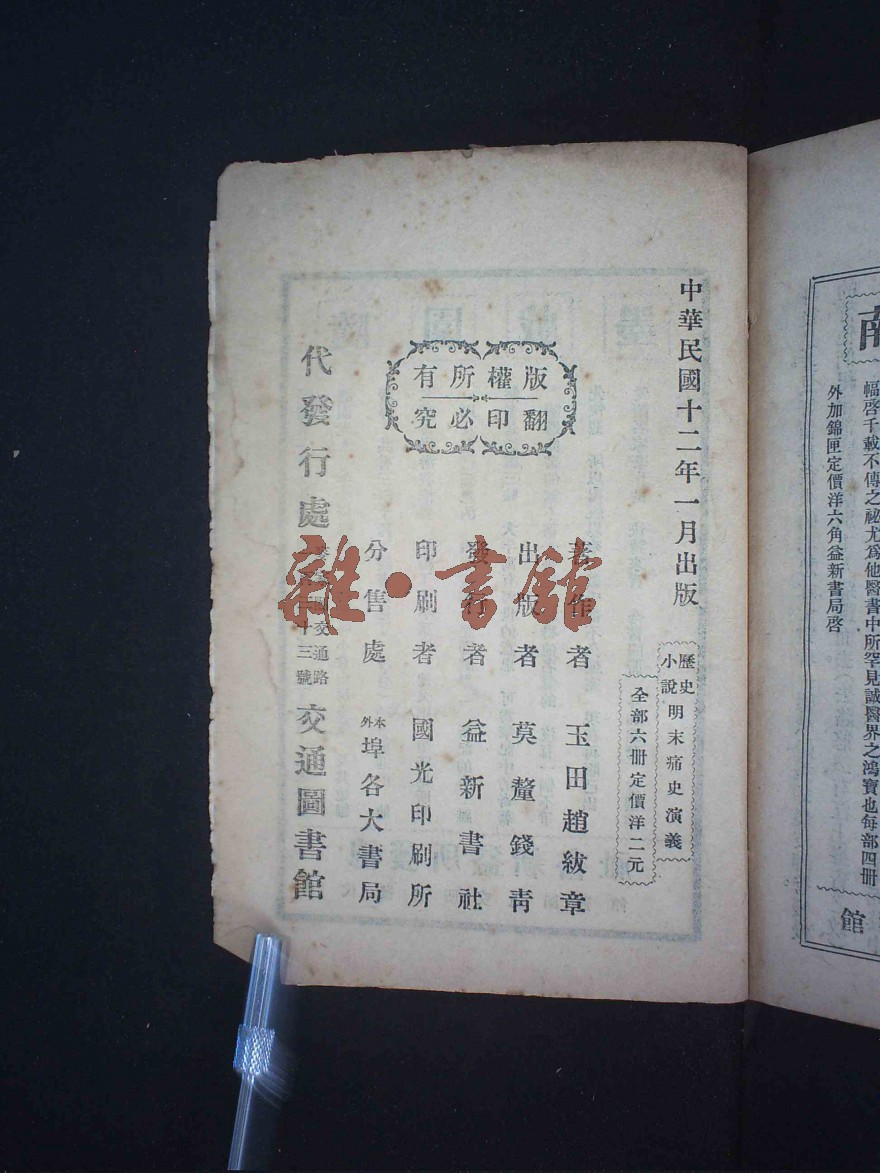 幅啓千載不傳之祕尤爲他醫書中所罕見誠醫界之鴻寶也每部四册
外加錦匣定價洋六角益新書局啓
館
中華民國十二年一月出版
歷史小說 明末痛史演義
全部六冊定價洋二元
版權所有
翻印必究
著作者 玉田趙紱章
出版者 莫釐錢青
發行者 益新書社
印刷者 國光印刷所
分售處 本外埠各大書局
代發行處 交通路 十三號 交通圖書館
雜·書館